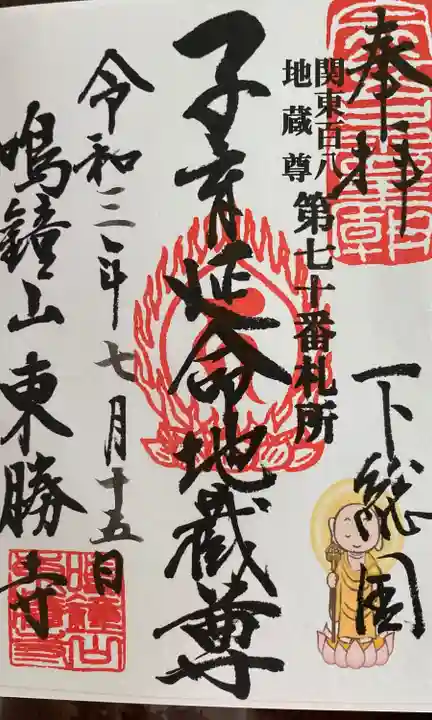 奉拝
下総国
関東百八
地蔵尊
第七十番札所
子育延命地蔵尊
令和三年七月十五日
鳴鐘山東勝寺